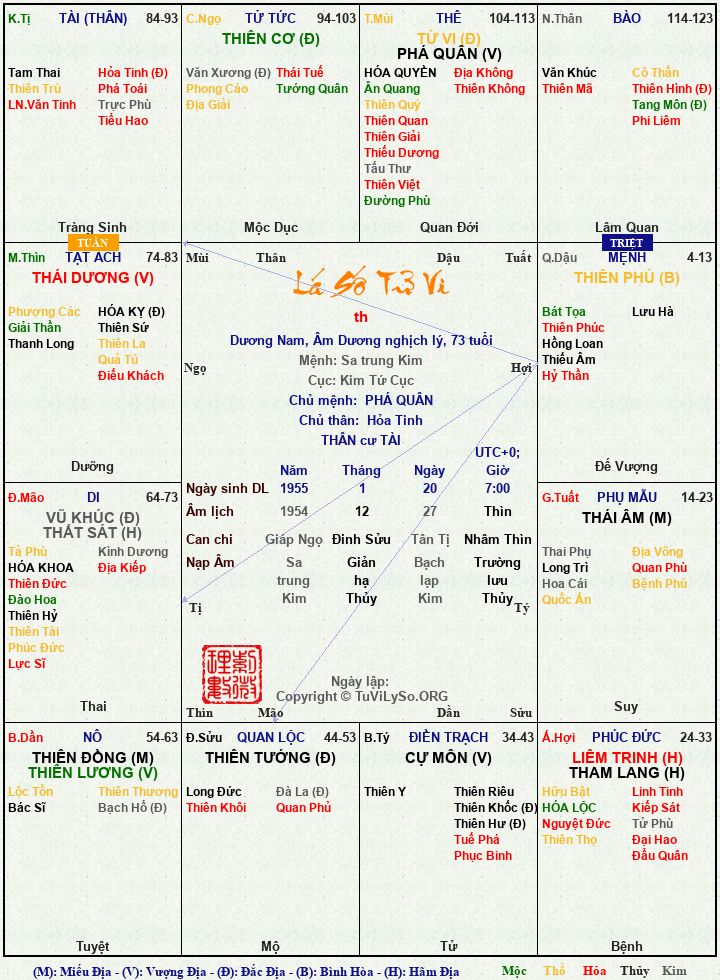 K.Tị TÀI (THÂN) 84-93
Tam Thai
Thiên Trù
LN.Văn Tinh
Hỏa Tinh (Đ)
Phá Toái
Trực Phù
Tiểu Hao
Tràng Sinh
C.Ngọ TỬ TỨC 94-103
THIÊN CƠ (Đ)
Văn Xương (Đ)
Phong Cáo
Địa Giải
Thái Tuế
Tướng Quân
Mộc Dục
T.Mùi THÊ 104-113
TỬ VI (Đ)
PHÁ QUÂN (V)
HÓA QUYỀN
Ân Quang
Thiên Quý
Thiên Quan
Thiên Giải
Thiếu Dương
Tấu Thư
Thiên Việt
Đường Phù
Địa Không
Thiên Không
Quan Đới
N.Thân BÀO 114-123
Văn Khúc
Thiên Mã
Cô Thần
Thiên Hình (Đ)
Tang Môn (Đ)
Phi Liêm
Lâm Quan
TUẦN
TRIỆT
M.Thìn TẬT ÁCH 74-83
THÁI DƯƠNG (V)
Phượng Các
Giải Thần
Thanh Long
HÓA KỴ (Đ)
Thiên Sứ
Thiên La
Quả Tú
Điếu Khách
Dưỡng
Mùi Thân Dậu Tuất
Lá Số Tử Vi
th
Dương Nam, Âm Dương nghịch lý, 73 tuổi
Mệnh: Sa trung Kim
Ngọ
Hợi
Cục: Kim Tứ Cục
Chủ mệnh: PHÁ QUÂN
Chủ thân: Hỏa Tinh
THÂN cư TÀI
UTC+0;
Năm Tháng Ngày Giờ
Ngày sinh DL 1955 1 20 7:00
Âm lịch 1954 12 27 Thìn
Can chi Giáp Ngọ Đinh Sửu Tân Tị Nhâm Thìn
Nạp Âm Sa Giản Bạch Trường
trung hạ lạp lưu
Kim Thủy Kim Thủy
Tị
Tý
Ngày lập:
Copyright © TuViLySo.ORG
Thìn Mão Dần Sửu
Q.Dậu MỆNH 4-13
THIÊN PHỦ (B)
Bát Tọa
Thiên Phúc
Hồng Loan
Thiếu Âm
Hỷ Thần
Lưu Hà
Đế Vượng
Đ.Mão DI 64-73
VŨ KHÚC (Đ)
THẤT SÁT (H)
Tả Phù
HÓA KHOA
Thiên Đức
Đào Hoa
Thiên Hỷ
Thiên Tài
Phúc Đức
Lực Sĩ
Kình Dương
Địa Kiếp
Thai
G.Tuất PHỤ MẪU 14-23
THÁI ÂM (M)
Thai Phụ
Long Trì
Hoa Cái
Quốc Ấn
Địa Võng
Quan Phù
Bệnh Phù
Suy
B.Dần NÔ 54-63
THIÊN ĐỒNG (M)
THIÊN LƯƠNG (V)
Lộc Tồn
Bác Sĩ
Thiên Thương
Bạch Hổ (Đ)
Tuyệt
Đ.Sửu QUAN LỘC 44-53
THIÊN TƯỚNG (Đ)
Long Đức
Thiên Khôi
Đà La (Đ)
Quan Phủ
Mộ
B.Tý ĐIỀN TRẠCH 34-43
CỰ MÔN (V)
Thiên Y
Thiên Riêu
Thiên Khốc (Đ)
Thiên Hư (Đ)
Tuế Phá
Phục Binh
Tử
Ấ.Hợi PHÚC ĐỨC 24-33
LIÊM TRINH (H)
THAM LANG (H)
Hữu Bật
HÓA LỘC
Nguyệt Đức
Thiên Thọ
Linh Tinh
Kiếp Sát
Tử Phù
Đại Hao
Đẩu Quân
Bệnh
(M): Miếu Địa - (V): Vượng Địa - (Đ): Đắc Địa - (B): Bình Hòa - (H): Hãm Địa Mộc Thổ Hỏa Thủy Kim